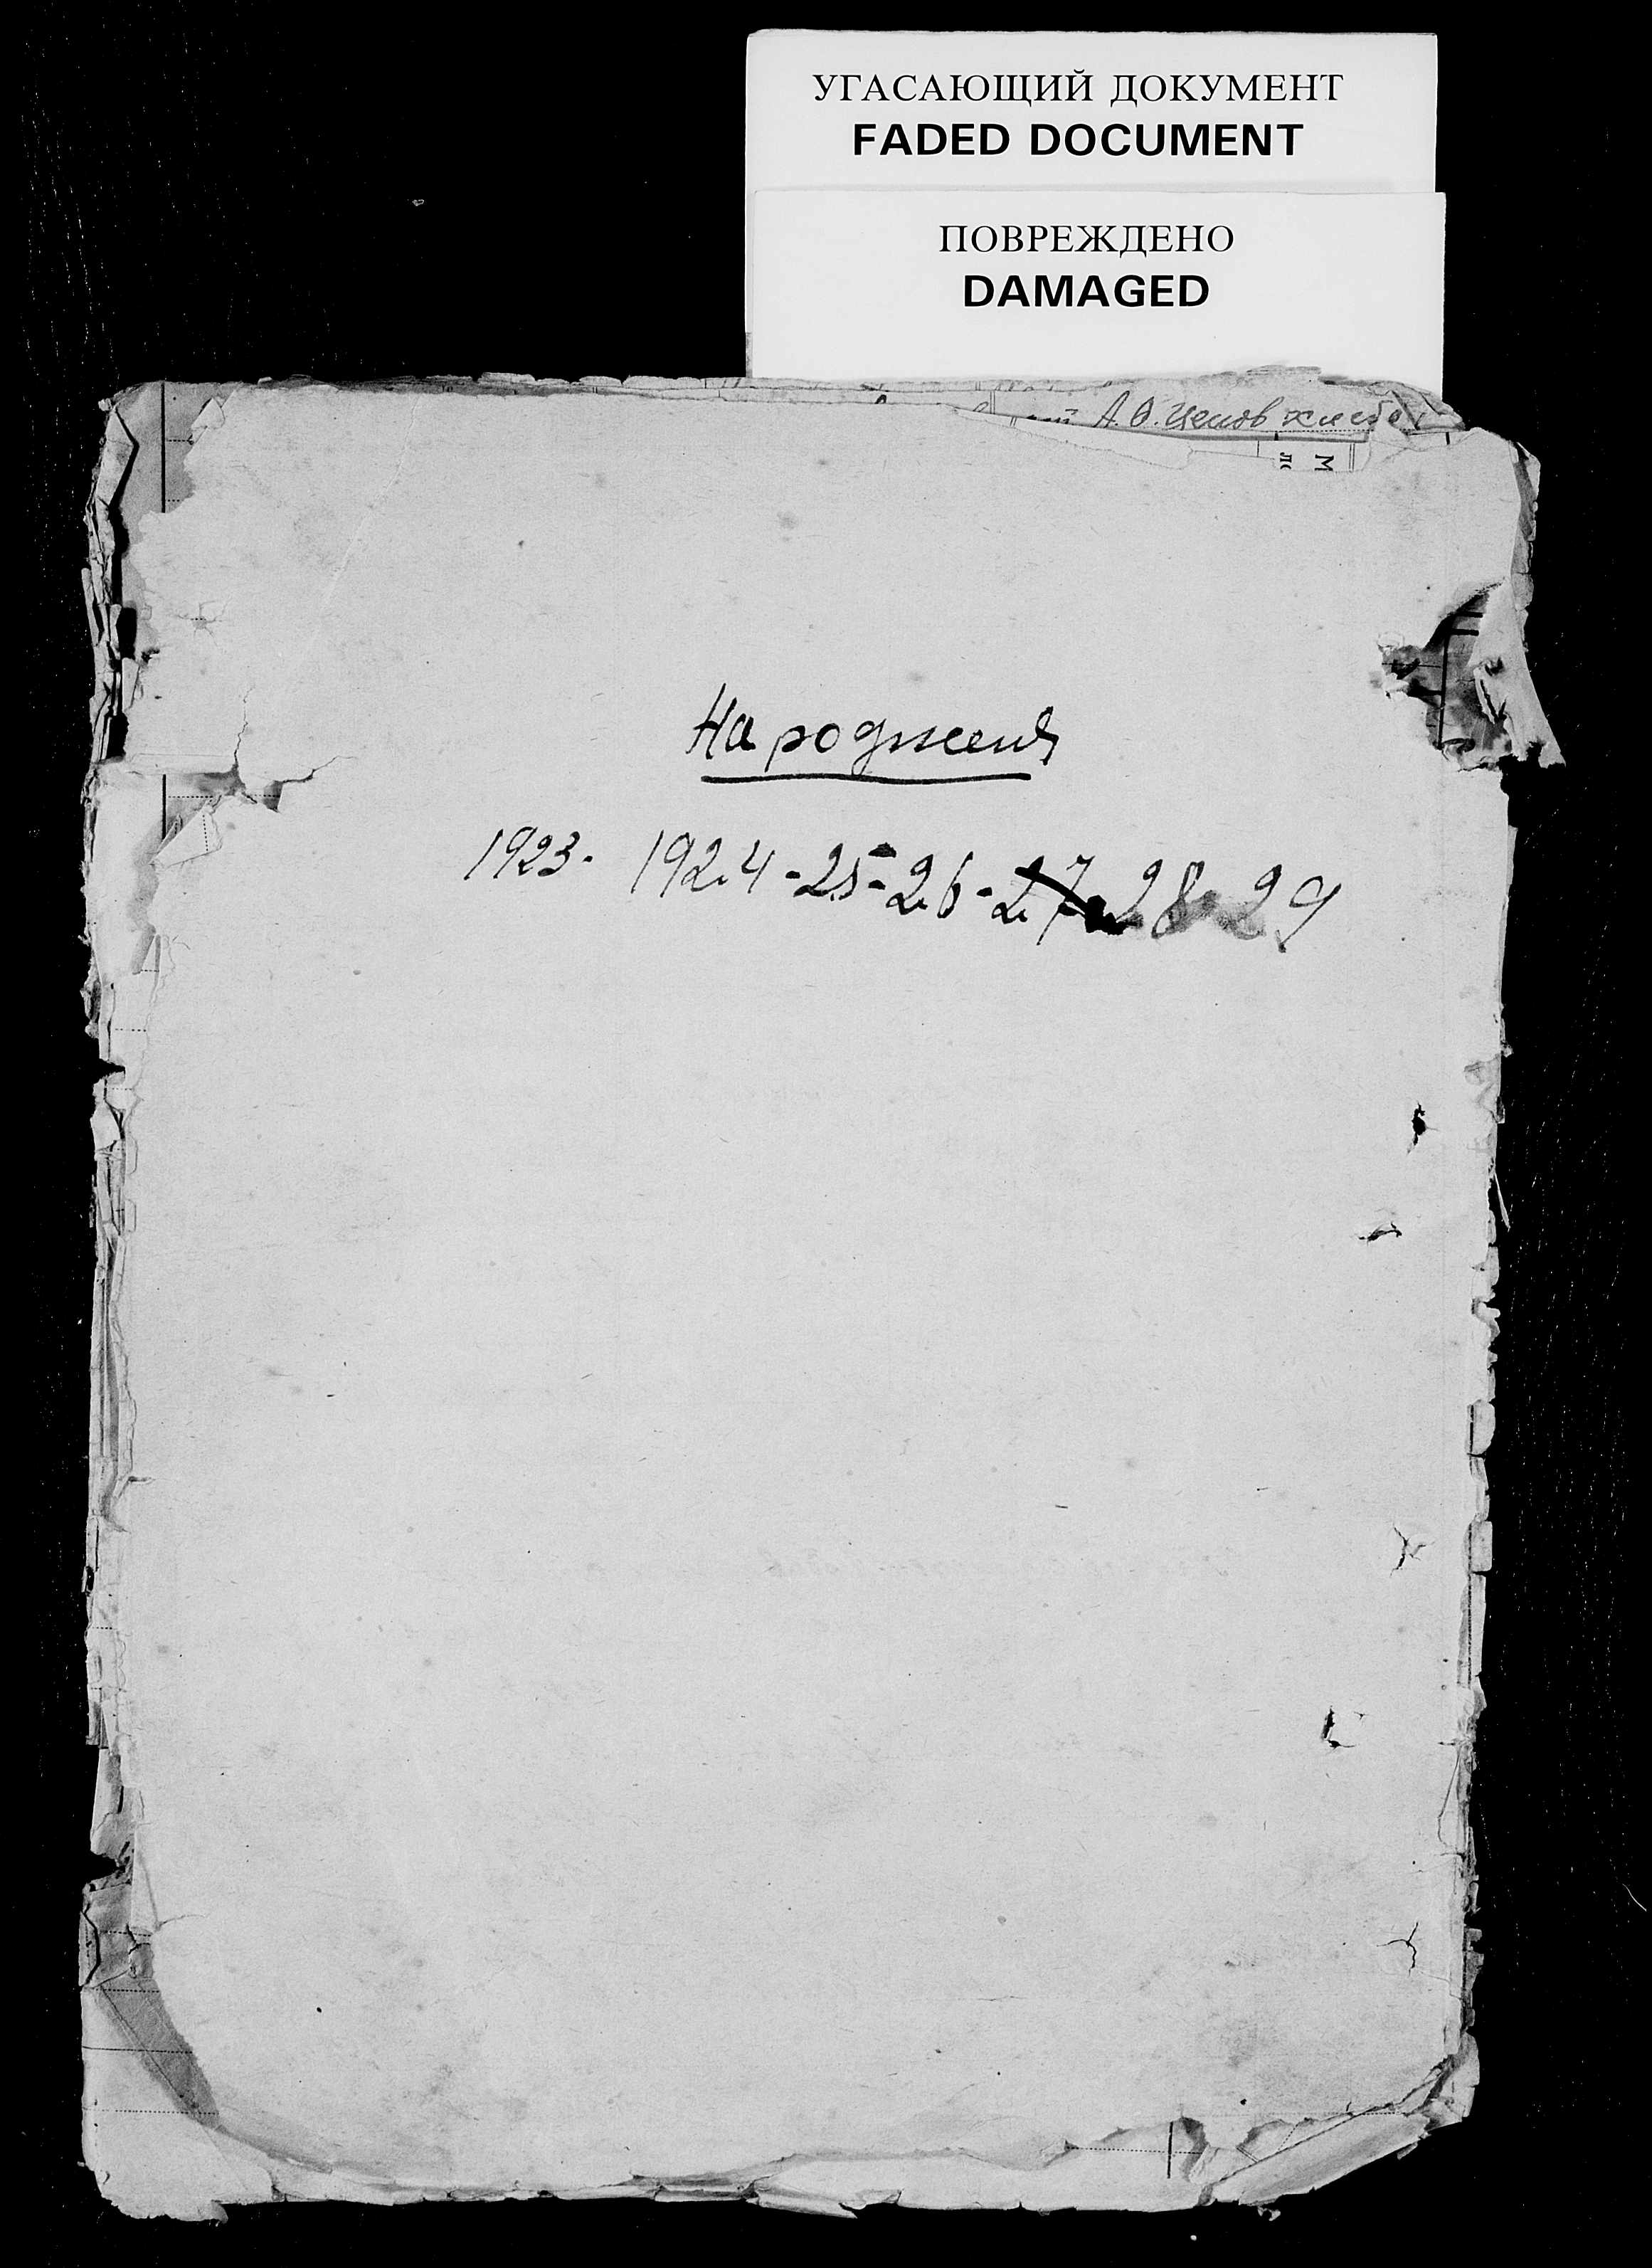 УГАСАЮЩИЙ ДОКУМЕНТ
FADED DOCUMENT
ПОВРЕЖДЕНО
DAMAGED
А. О.
Народженя
1923. 1924-25-26-27-28-29